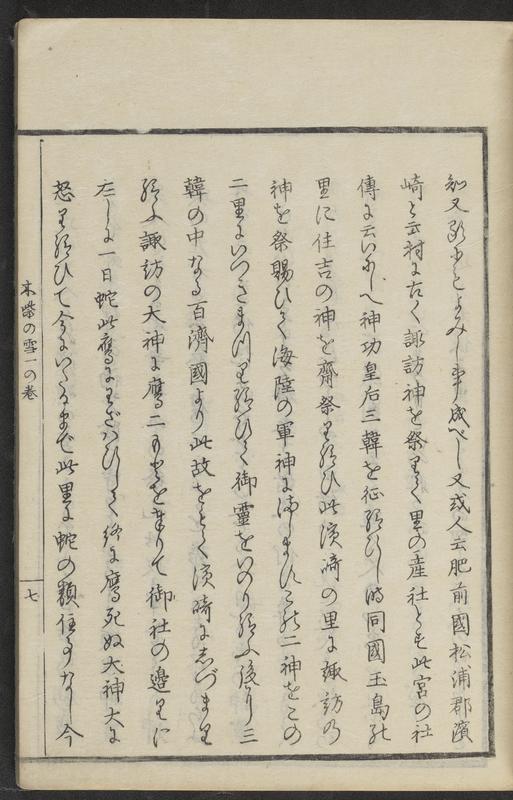 知又聞ゆとよみし事成べし又或人云肥前國松浦郡濱
崎と云村に古く諏訪神を祭りて里の産社とせ此宮の社
傳に云いにしへ神功皇后三韓を征給ひし時同國玉島の
里に住吉の神を齋祭り給ひ此濱崎の里に諏訪の
神を祭賜ひて海陸の軍神にましませばこの二神をこの
二里にいつきまつり給ひて御靈をいのり給ふ後り三
韓の中なる百濟國より此故をとて濱崎に志づまり
給ふ諏訪の大神に鷹二もとを奉りて御社の邉りに
在しに一日蛇此鷹にわざハひして終に鷹死ぬ大神大に
怒り給ひて今にいたるまで此里に蛇の類住事なし今
木柴の雪一の巻
七